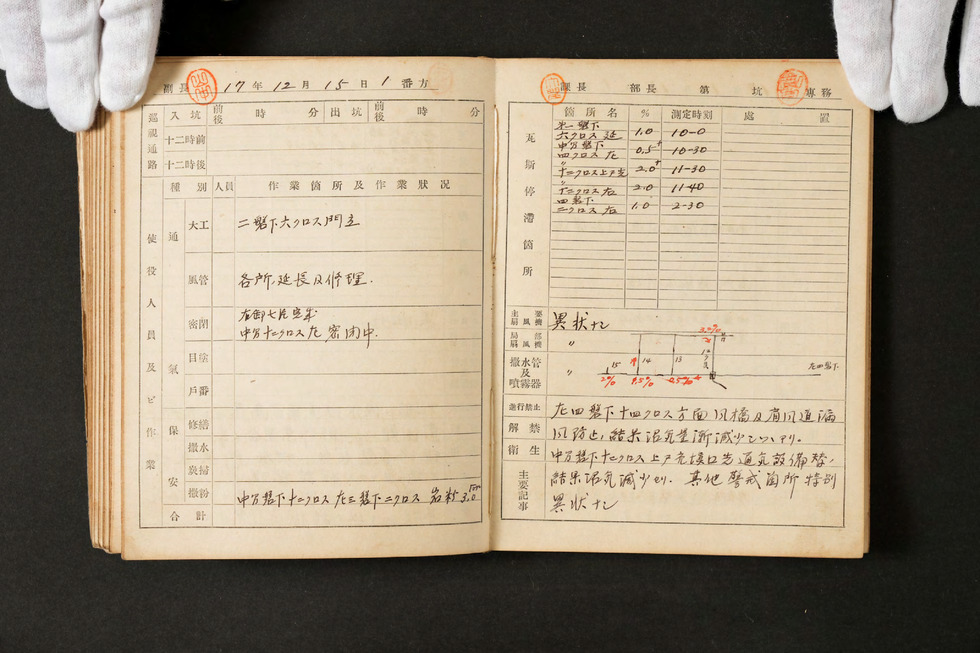 副長 17年12月15日1番方
巡視通路 入坑 前後 時 分 出坑 前後 時 分
十二時前
十二時後
使役人員及ビ作業
種別 人員 作業箇所及作業狀况
通氣
大工 二盤下六クロス門立
風管 各所延長及修理.
密閉
中方十二クロス左密閉中.
目塗
戶番
保安
修繕
撒水
炭掃
撒粉 中方盤下十二クロス左三盤下二クロス 岩粉 3.0
合計
課長 部長 第 坑 專務
瓦斯停滯箇所
箇所名 % 測定時刻 處置
第一盤下
六クロス延 1.0 10-0
中方盤下
四クロス左 0.5+ 10-30
〃
十二クロス上戸先 2.0+ 11-30
〃
十二クロス左 2.0 11-40
四盤下
二クロス右 1.0 2-30
主要扇風機 異狀ナシ
局部扇風機 〃
撒水管及噴霧器 〃
3.0%
15 14 13
2% 1.5% 0.5%+
左四盤下
進行禁止
解禁
衛生
主要記事
左四盤下十四クロス方面風橋及肩風道漏
風防止,結果沼氣量漸減少シツツアリ。
中方盤下十二クロス上戸先
結果沼氣減少セリ. 其他警戒箇所特別
異狀ナシ